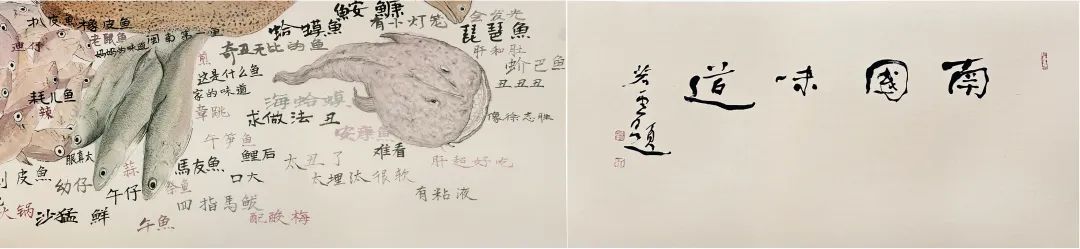 扒皮魚
橡皮魚
老鼠魚
闽南第一鱼
妈妈的味道
迪仔
煎
奇丑无比的鱼
蛤蟆魚
鮟鱇
有小灯笼
会发光
琵琶魚
肝和肚
丑丑丑
这是什么鱼
家的味道
耗儿魚
辣
章跳
海蛤蟆
求做法 丑
安康鱼
像徐志胜
午笋鱼
难看
肝超好吃
眼真大
蒜
馬友魚
鲤后
太丑了
剥皮魚
幼仔
午仔
祭鱼
口大
太埋汰
很软
有粘液
火锅
沙猛
鮮
午魚
四指馬鲅
配酸梅
南國味道
題